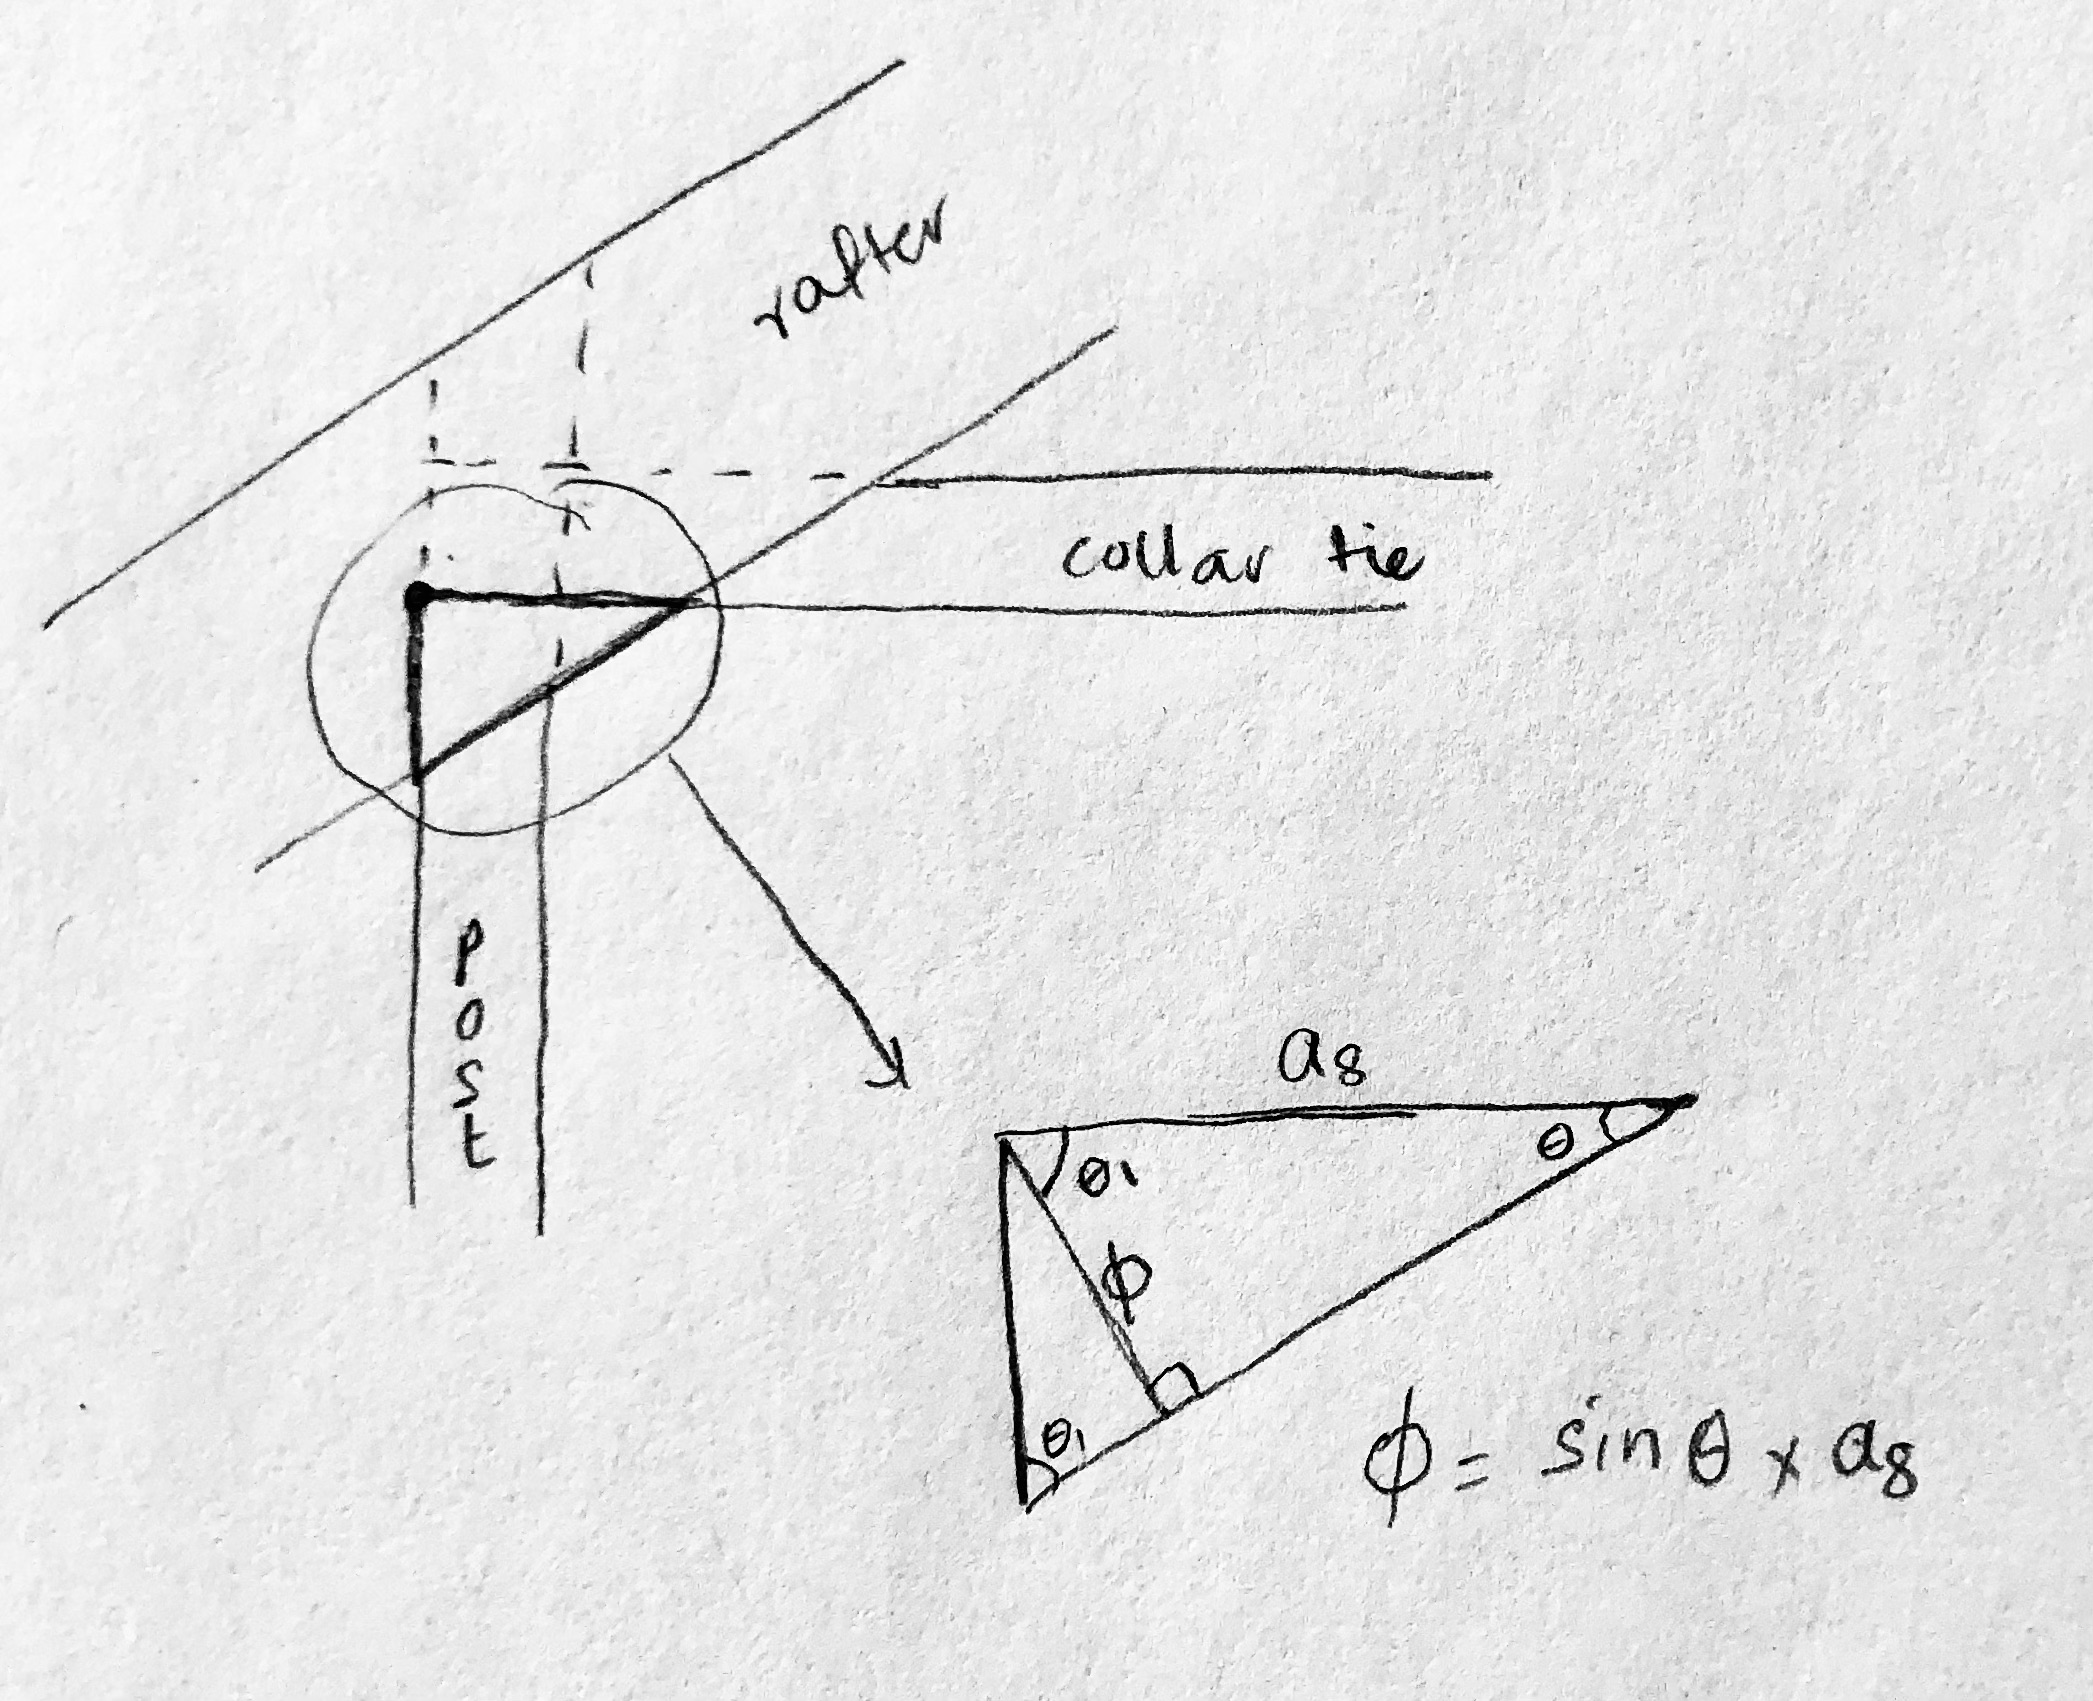 rafter
collar tie
post
a₈
θ₁
θ
ϕ
θ₁
ϕ = sin θ × a₈